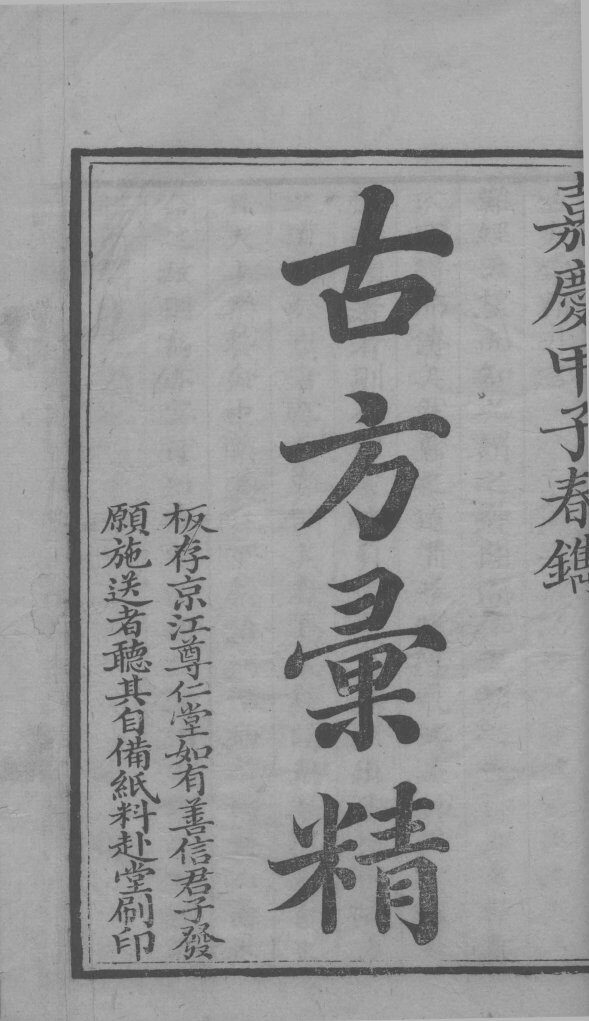 嘉慶甲子春鐫
古方彙精
板存京江尊仁堂如有善信君子發
願施送者聽其自備紙料赴堂刷印